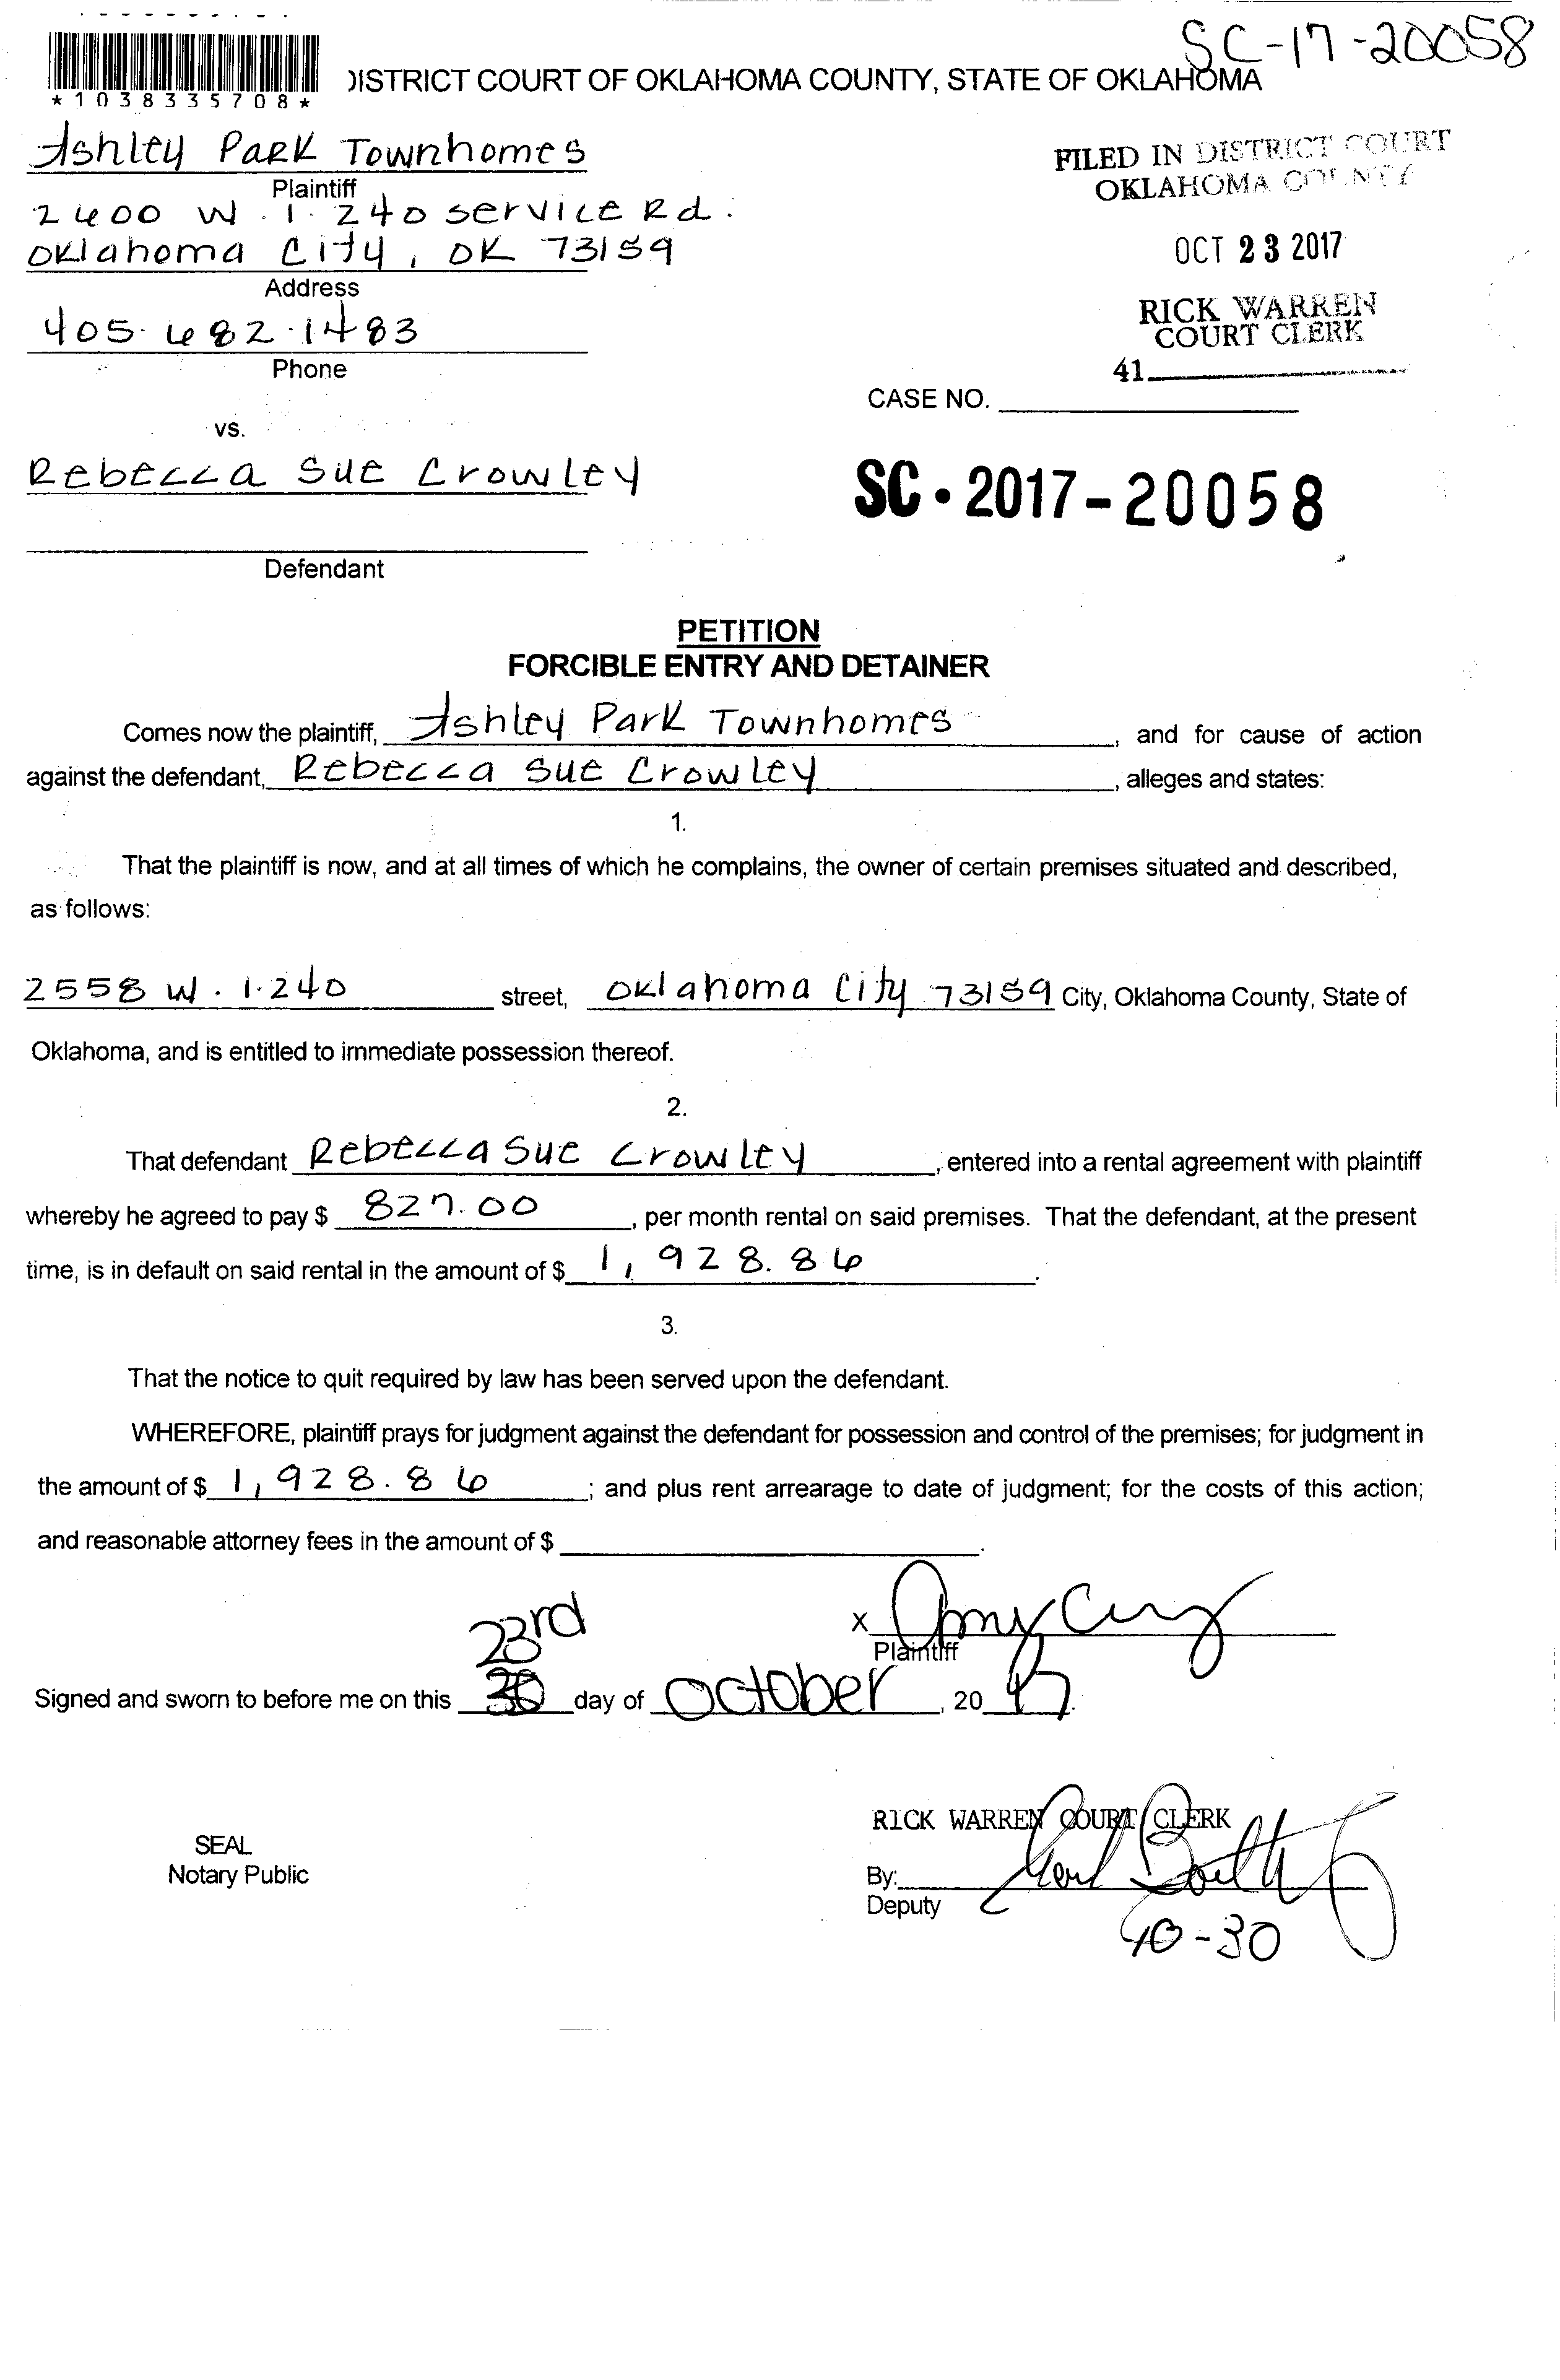 SC-17-20058
*1038335708*
DISTRICT COURT OF OKLAHOMA COUNTY, STATE OF OKLAHOMA
Ashley Park Townhomes
Plaintiff
2600 W. I. 240 service Rd.
Oklahoma City, OK 73159
Address
405-682-1483
Phone
FILED IN DISTRICT COURT
OKLAHOMA COUNTY
OCT 23 2017
RICK WARREN
COURT CLERK
41
CASE NO.
vs.
Rebecca Sue Crowley
SC-2017-20058
Defendant
PETITION
FORCIBLE ENTRY AND DETAINER
Comes now the plaintiff, Ashley Park Townhomes, and for cause of action
against the defendant, Rebecca Sue Crowley, alleges and states:
1.
That the plaintiff is now, and at all times of which he complains, the owner of certain premises situated and described,
as follows:
2558 W. I-240 street, Oklahoma City 73159 City, Oklahoma County, State of
Oklahoma, and is entitled to immediate possession thereof.
2.
That defendant Rebecca Sue Crowley, entered into a rental agreement with plaintiff
whereby he agreed to pay $ 827.00, per month rental on said premises. That the defendant, at the present
time, is in default on said rental in the amount of $ 1,928.86.
3.
That the notice to quit required by law has been served upon the defendant.
WHEREFORE, plaintiff prays for judgment against the defendant for possession and control of the premises; for judgment in
the amount of $ 1,928.86; and plus rent arrearage to date of judgment; for the costs of this action;
and reasonable attorney fees in the amount of $
x
Plaintiff
23rd
Signed and sworn to before me on this day of October, 2017.
RICK WARREN COURT CLERK
SEAL
Notary Public
By:
Deputy